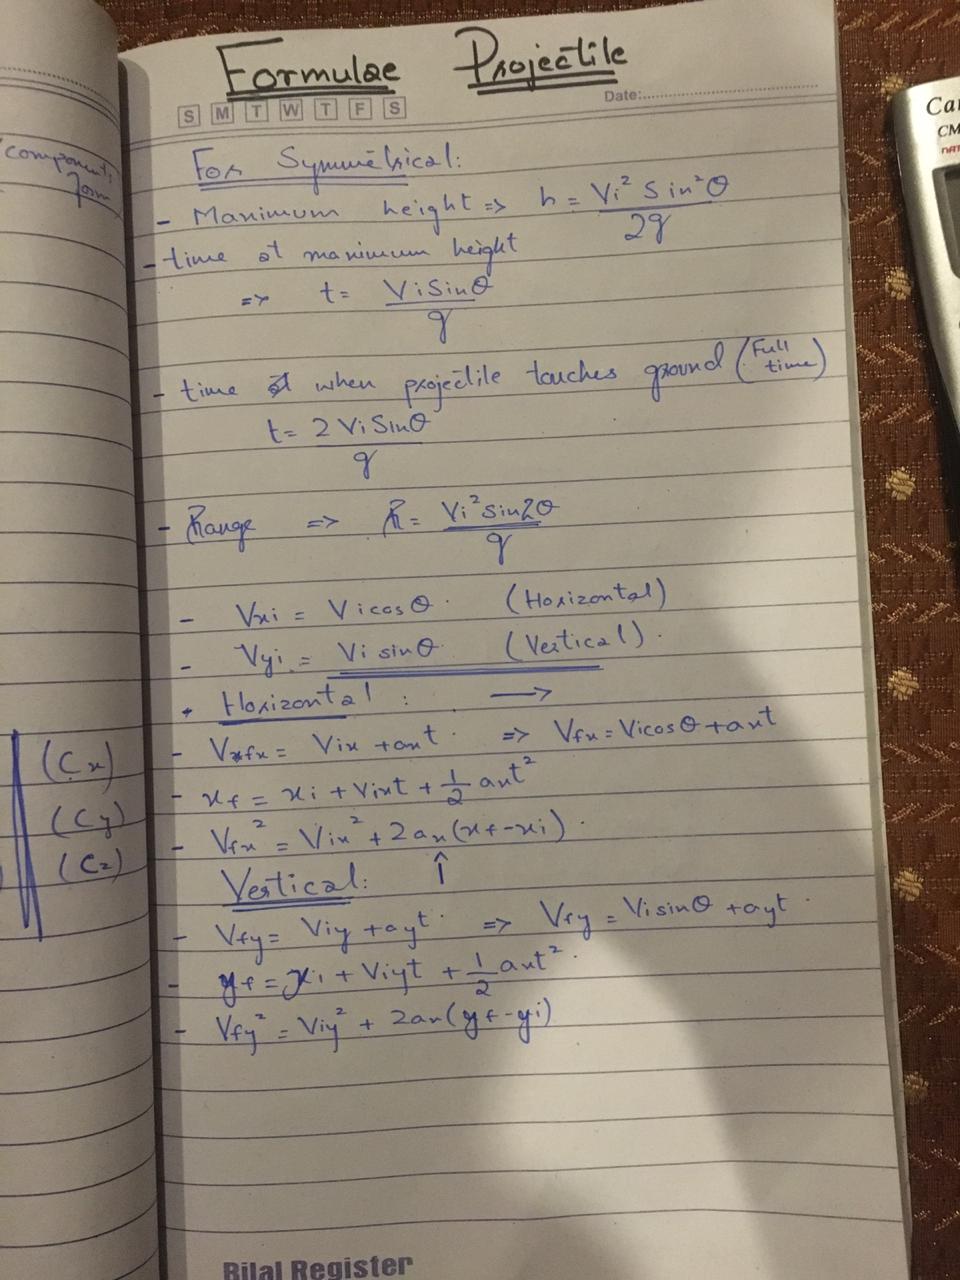 Formulae Projectile
S M T W T F S
Date:
For Symmetrical:
- Maximum height => h = Vi² Sin²θ / 2g
- time at maximum height
=> t = Vi Sinθ / g
- time when projectile touches ground (Full time)
t = 2 Vi Sinθ / g
- Range => R = Vi² sin2θ / g
- Vxi = Vicosθ. (Horizontal)
- Vyi = Vi sinθ (Vertical).
Horizontal : →
- Vfx = Vix + axt. => Vfx = Vicosθ + axt
- xf = xi + Vixt + 1/2 axt²
- Vfx² = Vix² + 2ax(xf-xi).
Vertical: ↑
- Vfy = Viy + ayt. => Vfy = Visinθ + ayt.
- yf = xi + Viyt + 1/2 axt².
- Vfy² = Viy² + 2ax(yf-yi)
Bilal Register
component
form
(Cx)
(Cy)
(Cz)
Ca
CM